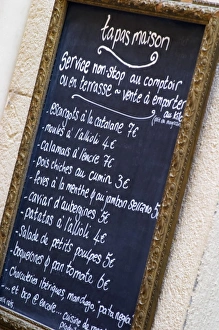 tapas maison
Service non-stop au comptoir
ou en terrasse ~ vente à emporter
au kilo
- escargots à la catalane 7€
- moules à l'allioli 4€
- calamars à l'encre 7€
- pois chiches au cumin 3€
- fèves à la menthe & au jambon serrano 5
- caviar d'aubergines 5€
- patatas à l'allioli 4€
- salade de petits poulpes 5€
- & pan tomate 6€
- Charcuteries ibériques,
... et